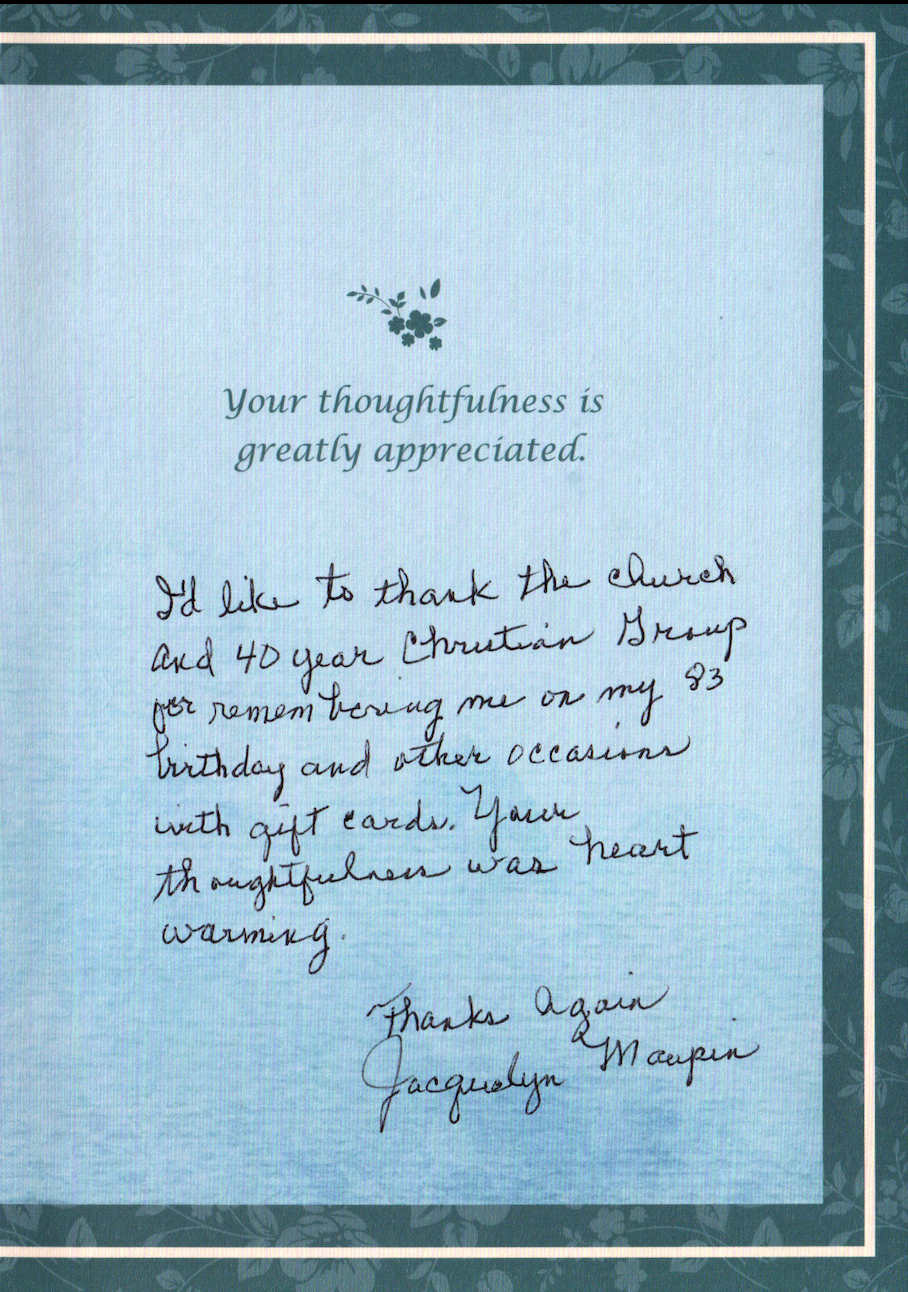 Your thoughtfulness is
greatly appreciated.
I'd like to thank the church
and 40 year Christian Group
for remembering me on my 83
birthday and other occasions
with gift cards. Your
thoughtfulness was heart
warming.
Thanks Again
Jacquelyn Maupin